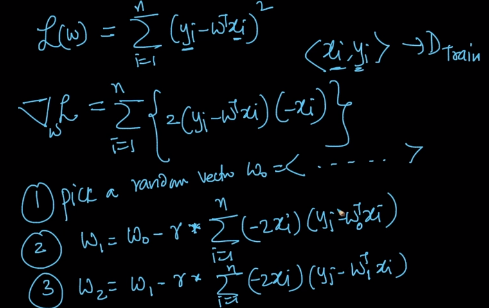 ℒ(w) = Σ_{i=1}^{n} (y_i - w^T x_i)^2
<x_i, y_i> → D_Train
∇_w ℒ = Σ_{i=1}^{n} { 2(y_i - w^T x_i)(-x_i) }
① pick a random vector w_0 = < ..... >
② w_1 = w_0 - r * Σ_{i=1}^{n} (-2x_i)(y_i - w_0^T x_i)
③ w_2 = w_1 - r * Σ_{i=1}^{n} (-2x_i)(y_i - w_1^T x_i)